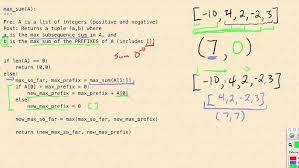 max_sum(A):
"""
Pre: A is a list of integers (positive and negative)
Post: Returns a tuple (a,b) where
a is the max subsequence sum in A, and
b is the max sum of the PREFIXES of A (includes [])
"""
Sum 0
if len(A) == 0:
return (0,0)
else:
max_so_far, max_prefix = max_sum(A[1:])
if A[0] + max_prefix > 0:
new_max_prefix = max_prefix + A[0]
else:
new_max_prefix = 0 []
new_max_so_far = max(max_so_far, new_max_prefix)
return (new_max_so_far, new_max_prefix)
[-10, 4, 2, -2, 3]
(7, 0)
[-10, 4, 2, -2, 3]
[4, 2, -2, 3]
(7,7)